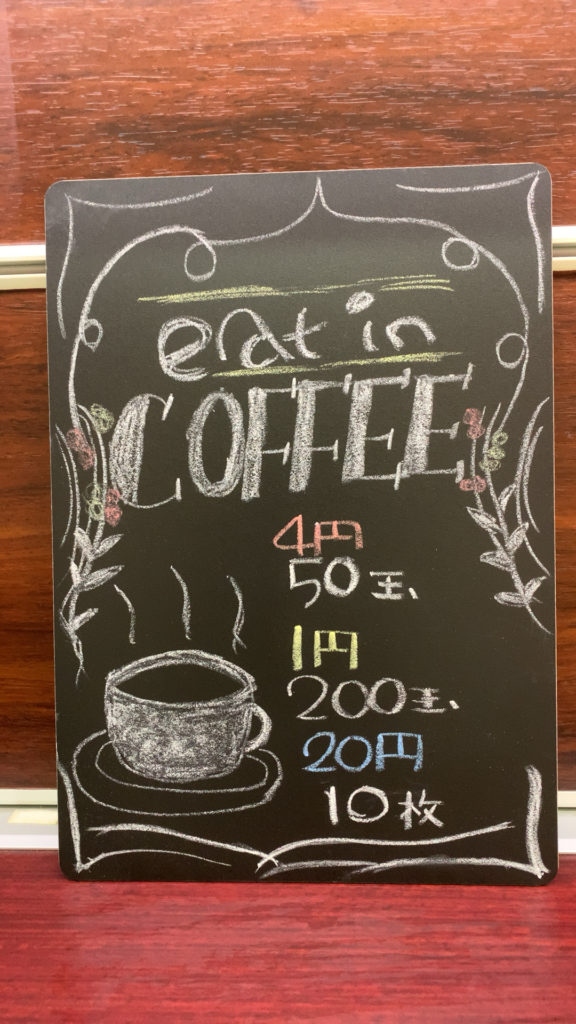 eat in
COFFEE
4円
50玉
1円
200玉
20円
10枚